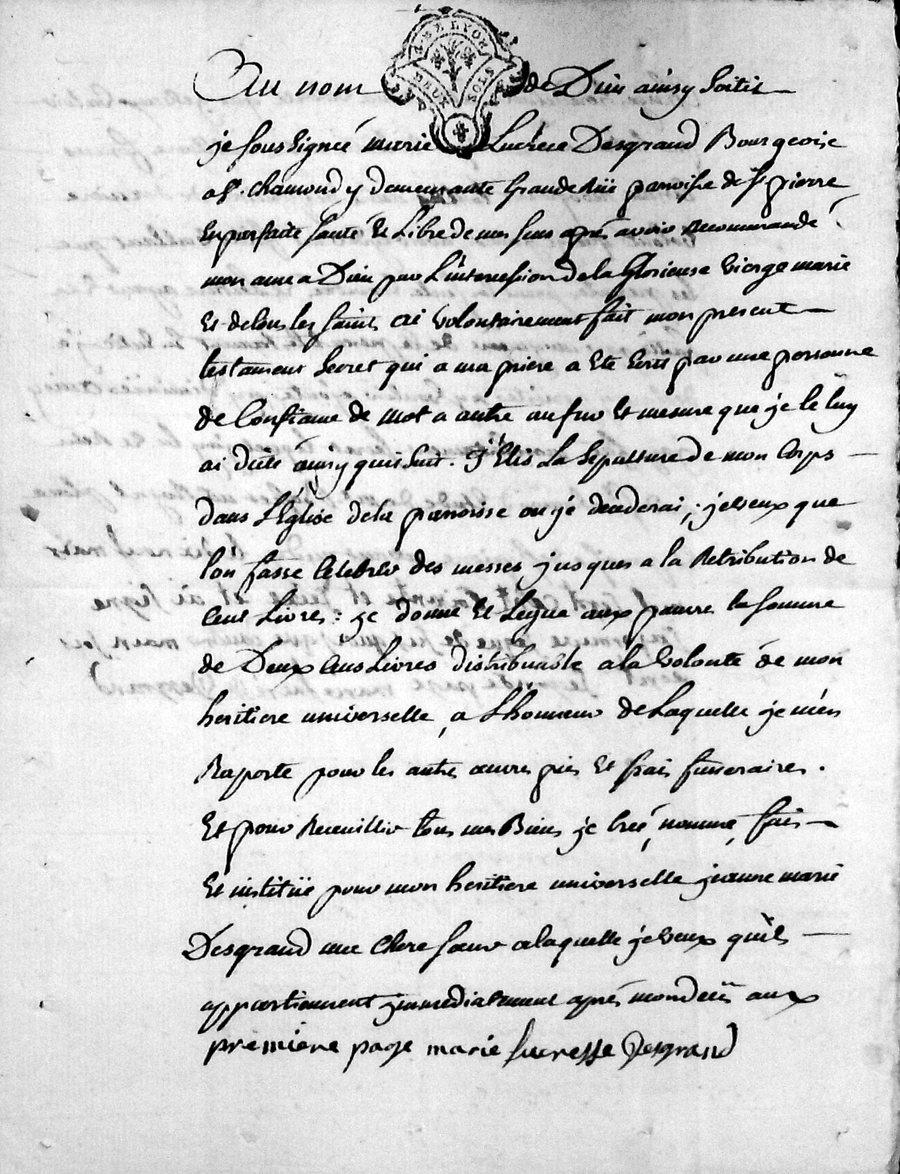 G. DE LYON
DEUX SOLS
Au nom de Dieu ainsy soitil
je soussignée marie Lucrèce Desgrand Bourgeoise
a St. chamond y demeurante Grande Rüe parroisse de St pierre
En parfaite santé Et Libre de mes sens aprés avoir Recommandé
mon ame a Dieu par L'intercession de la Glorieuse vierge marie
Et de tous les saints ai volontairement fait mon present
testament secret qui a ma priere a Eté Ecrit par une personne
de Confiance de mot a autre au fur Et mesure que je le luy
ai dicté ainsy quis suit. J'Elis La sepulture de mon Corps
dans L'Eglise de la parroisse ou je decederai; je veux que
lon fasse Celebrer des messes jusques a la Retribution de
Cent Livres: je donne Et Legue aux pauvre la somme
de Deux Cens Livres distribuable a la volonté de mon
heritiere universelle, a L'honneur de Laquelle je m'en
Raporte pour les autre œuvres pies Et frais funeraires.
Et pour Receuillir tous mes Biens je Creé, nomme, fais
Et institüe pour mon heritiere universelle jeanne marie
Desgrand ma Chere sœur a laquelle je veux quils
appartiennent jmmediatement aprés mon decès aux
première page marie lucresse Desgrand